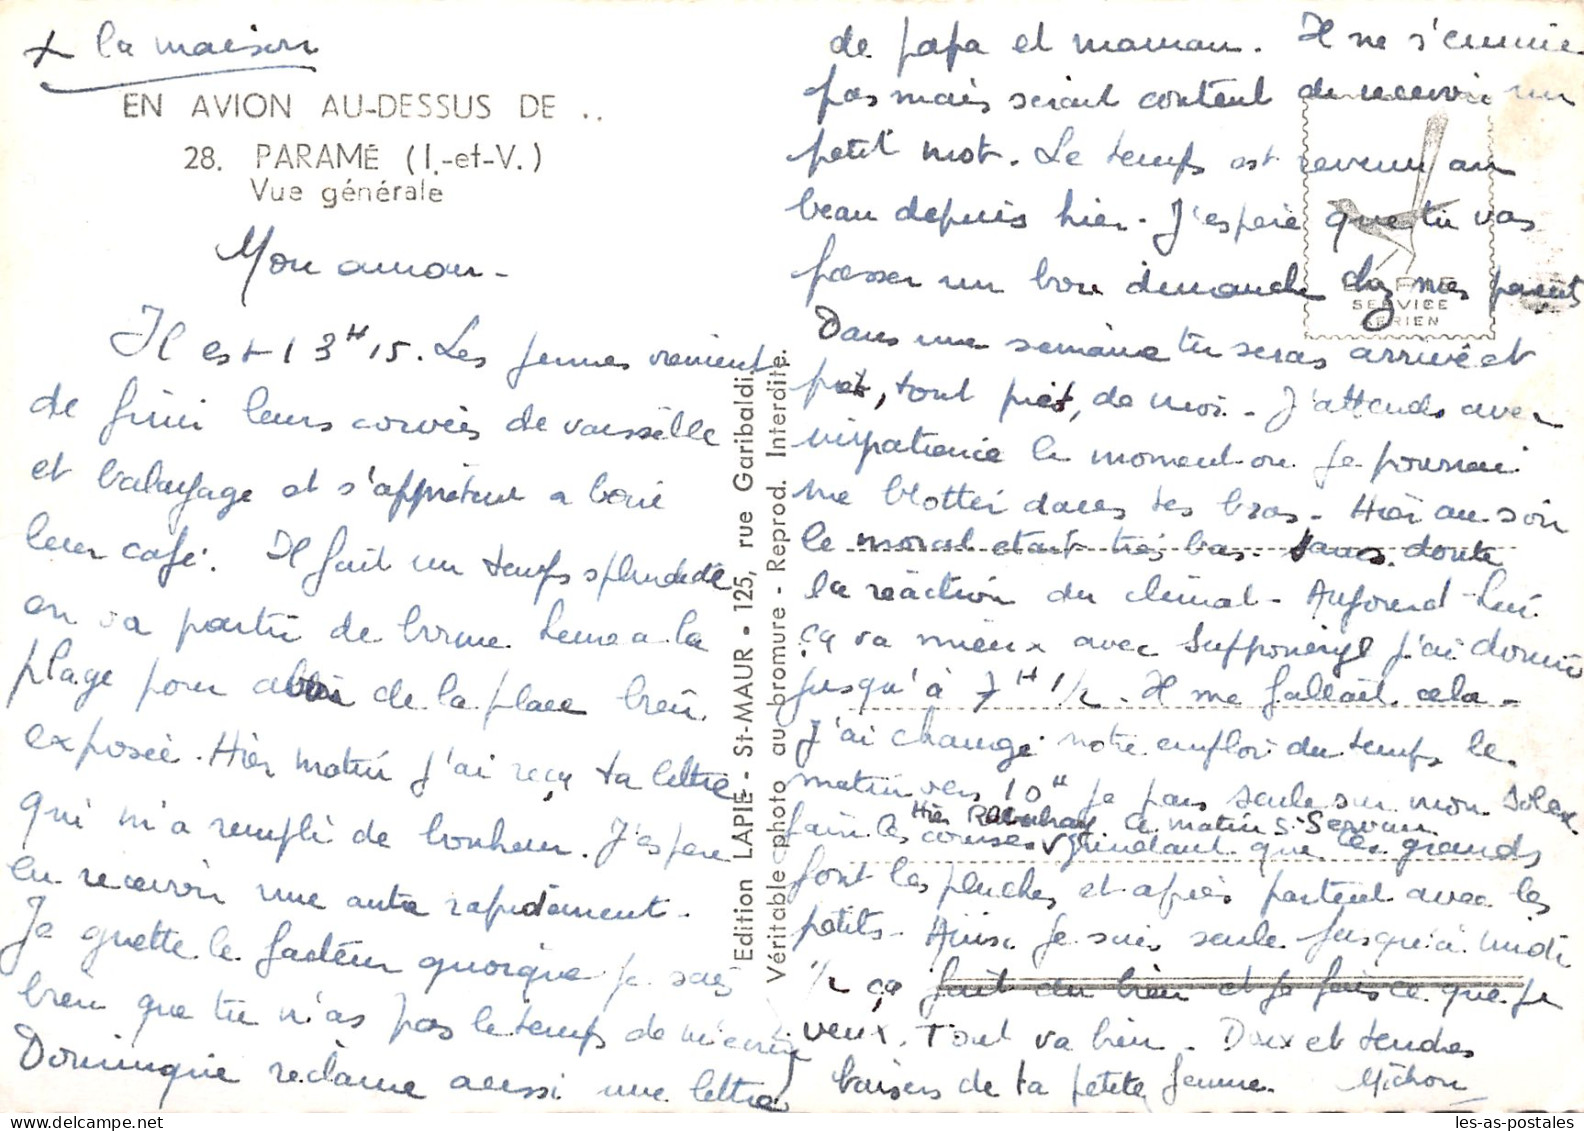 + la maison
EN AVION AU-DESSUS DE ..
28. PARAMÉ (I.-et-V.)
Vue générale
Mon amour -
Il est 13H15. Les femmes viennent
de finir leurs corvées de vaisselle
et balayage et s'apprêtent a boire
leur café. Il fait un temps splendide
on va partir de bonne heure a la
plage pour avoir de la place bien
exposée. Hier matin j'ai reçu ta lettre
qui m'a rempli de bonheur. J'espère
en recevoir une autre rapidement.
Je guette le facteur quoique je sais
bien que tu n'as pas le temps de m'écrire
Dominique réclame aussi une lettre
de papa et maman. Il ne s'ennuie
pas mais serait content de recevoir un
petit mot. Le temps est revenu au
beau depuis hier. J'espère que tu vas
passer un bon dimanche chez mes parents
Dans une semaine tu seras arrivé et
près, tout près, de moi. J'attends avec
impatience le moment ou je pourrai
me blottir dans tes bras. Hier au soir
le moral etait très bas. Sans doute
la réaction du climat. Aujourd'hui
ça va mieux avec Supponeryl j'ai dormi
jusqu'à 7H 1/2. Il me fallait cela.
J'ai changé notre emploi du temps le
matin vers 10H je pars seule sur mon Solex
Hier Rothéneuf ce matin St Servan
faire les courses pendant que les grands
font les pluches et après partent avec les
petits. Ainsi je suis seule jusqu'à midi
1/2 ça fait du bien et je fais ce que je
veux. Tout va bien. Doux et tendres
baisers de ta petite femme. Michou
Edition LAPIE - St-MAUR • 125, rue Garibaldi.
Véritable photo au bromure - Reprod. Interdite.
SERVICE
AERIEN
les-as-postales